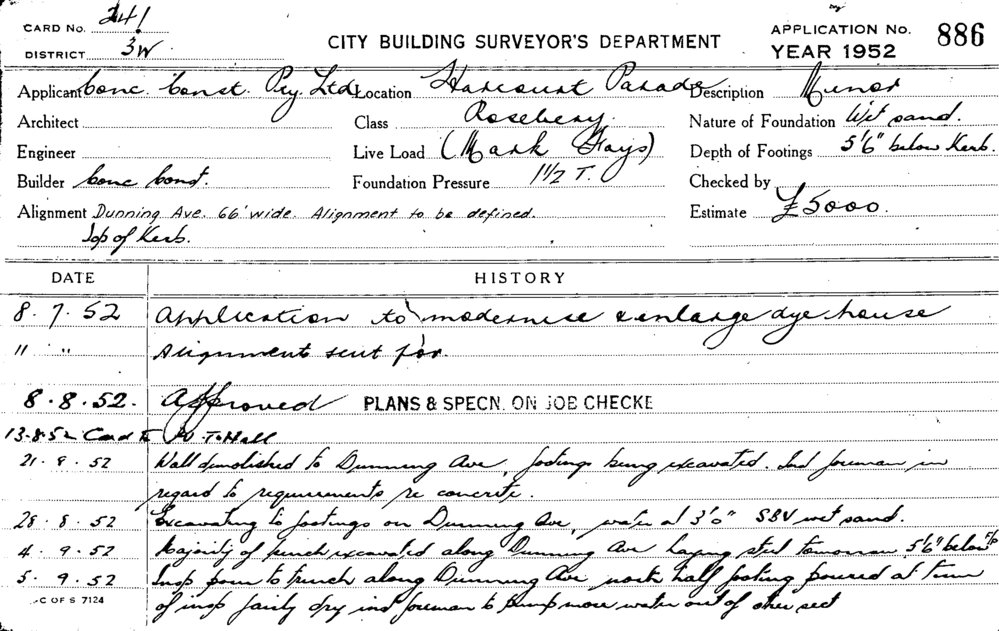 CARD NO. 241
DISTRICT 3W
CITY BUILDING SURVEYOR'S DEPARTMENT
APPLICATION NO. 886
YEAR 1952
Applicant Conc. Const. Pty. Ltd. Location Harcourt Parade Description Minor
Architect Class Rosebery. Nature of Foundation Wet sand.
Engineer Live Load (Mark Foys) Depth of Footings 5'6" below Kerb.
Builder Conc Const. Foundation Pressure 1 1/2 T. Checked by
Alignment Dunning Ave. 66' wide. Alignment to be defined. Estimate £5000.
Top of Kerb.
DATE HISTORY
8.7.52 Application to modernise & enlarge dye house
11 " Alignment sent for.
8.8.52. Approved PLANS & SPECN. ON JOB CHECKE
13.8.52 Card to T. Hall
21.8.52 Wall demolished to Dunning Ave, footings being excavated. Ind foreman in
regard to requirements re concrete.
28.8.52 Excavating to footings on Dunning Ave, water at 3'0" SBV wet sand.
4.9.52 Majority of trench excavated along Dunning Ave laying steel tomorrow 5'6" below
5.9.52 Insp pour to trench along Dunning Ave north half footing poured at time
of insp fairly dry ind foreman to pump more water out of other sect
C OF S 7124